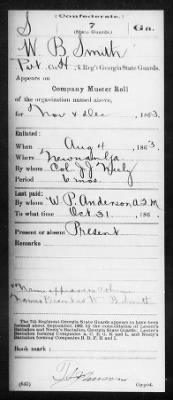 S
(Confederate.)
7
(State Guards.)
Ga.
W B Smith
Pvt. Co. H, 7 Reg't Georgia State Guards.
Appears on
Company Muster Roll
of the organization named above,
for Nov & Dec, 1863.
Enlisted:
When Aug 4, 1863
Where Newnan Ga
By whom Col J J Neely
Period 6 mos.
Last paid:
By whom W. P. Anderson, A.Q.M.
To what time Oct 31, 186
Present or absent Present
Remarks:
Name appears in column
Names Present as W.
The 7th Regiment Georgia State Guards appears to have been
formed about September, 1863, by the consolidation of Lester's
Battalion and Neely's Battalion Georgia State Guards. Lester's
Battalion forming Companies A, C, F, G, H and I, and Neely's
Battalion forming Companies B, D, E and I.
Book mark:
(642)
Copyist.